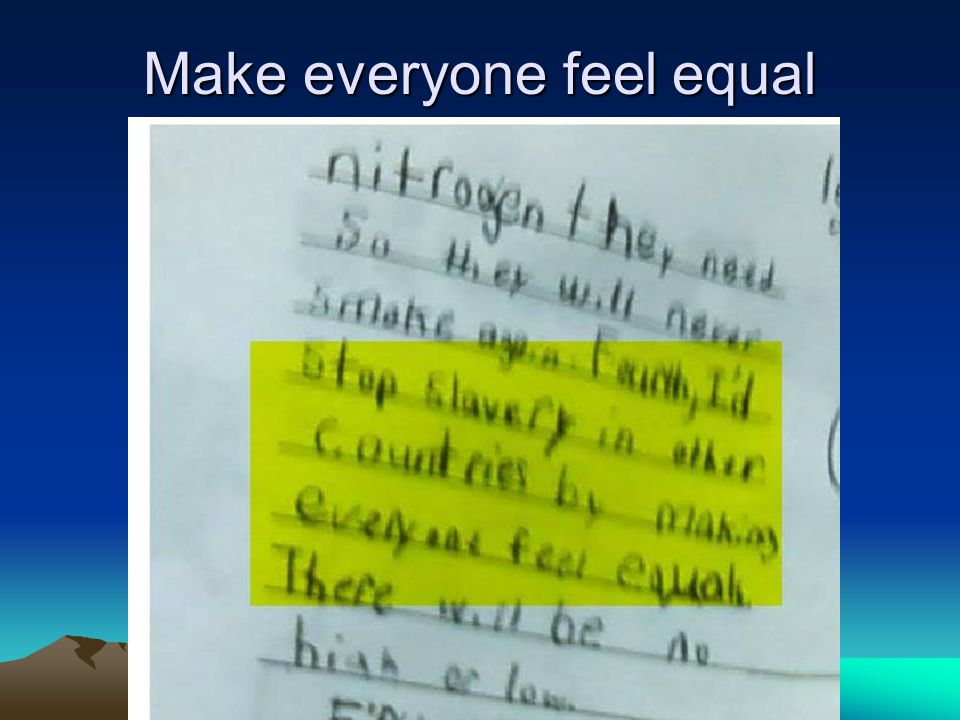 Make everyone feel equal
nitrogen they need
So they will never
smoke again. Fourth, I'd
Stop slavery in other
Countries by making
everyone feel equal.
There will be no
high or low.